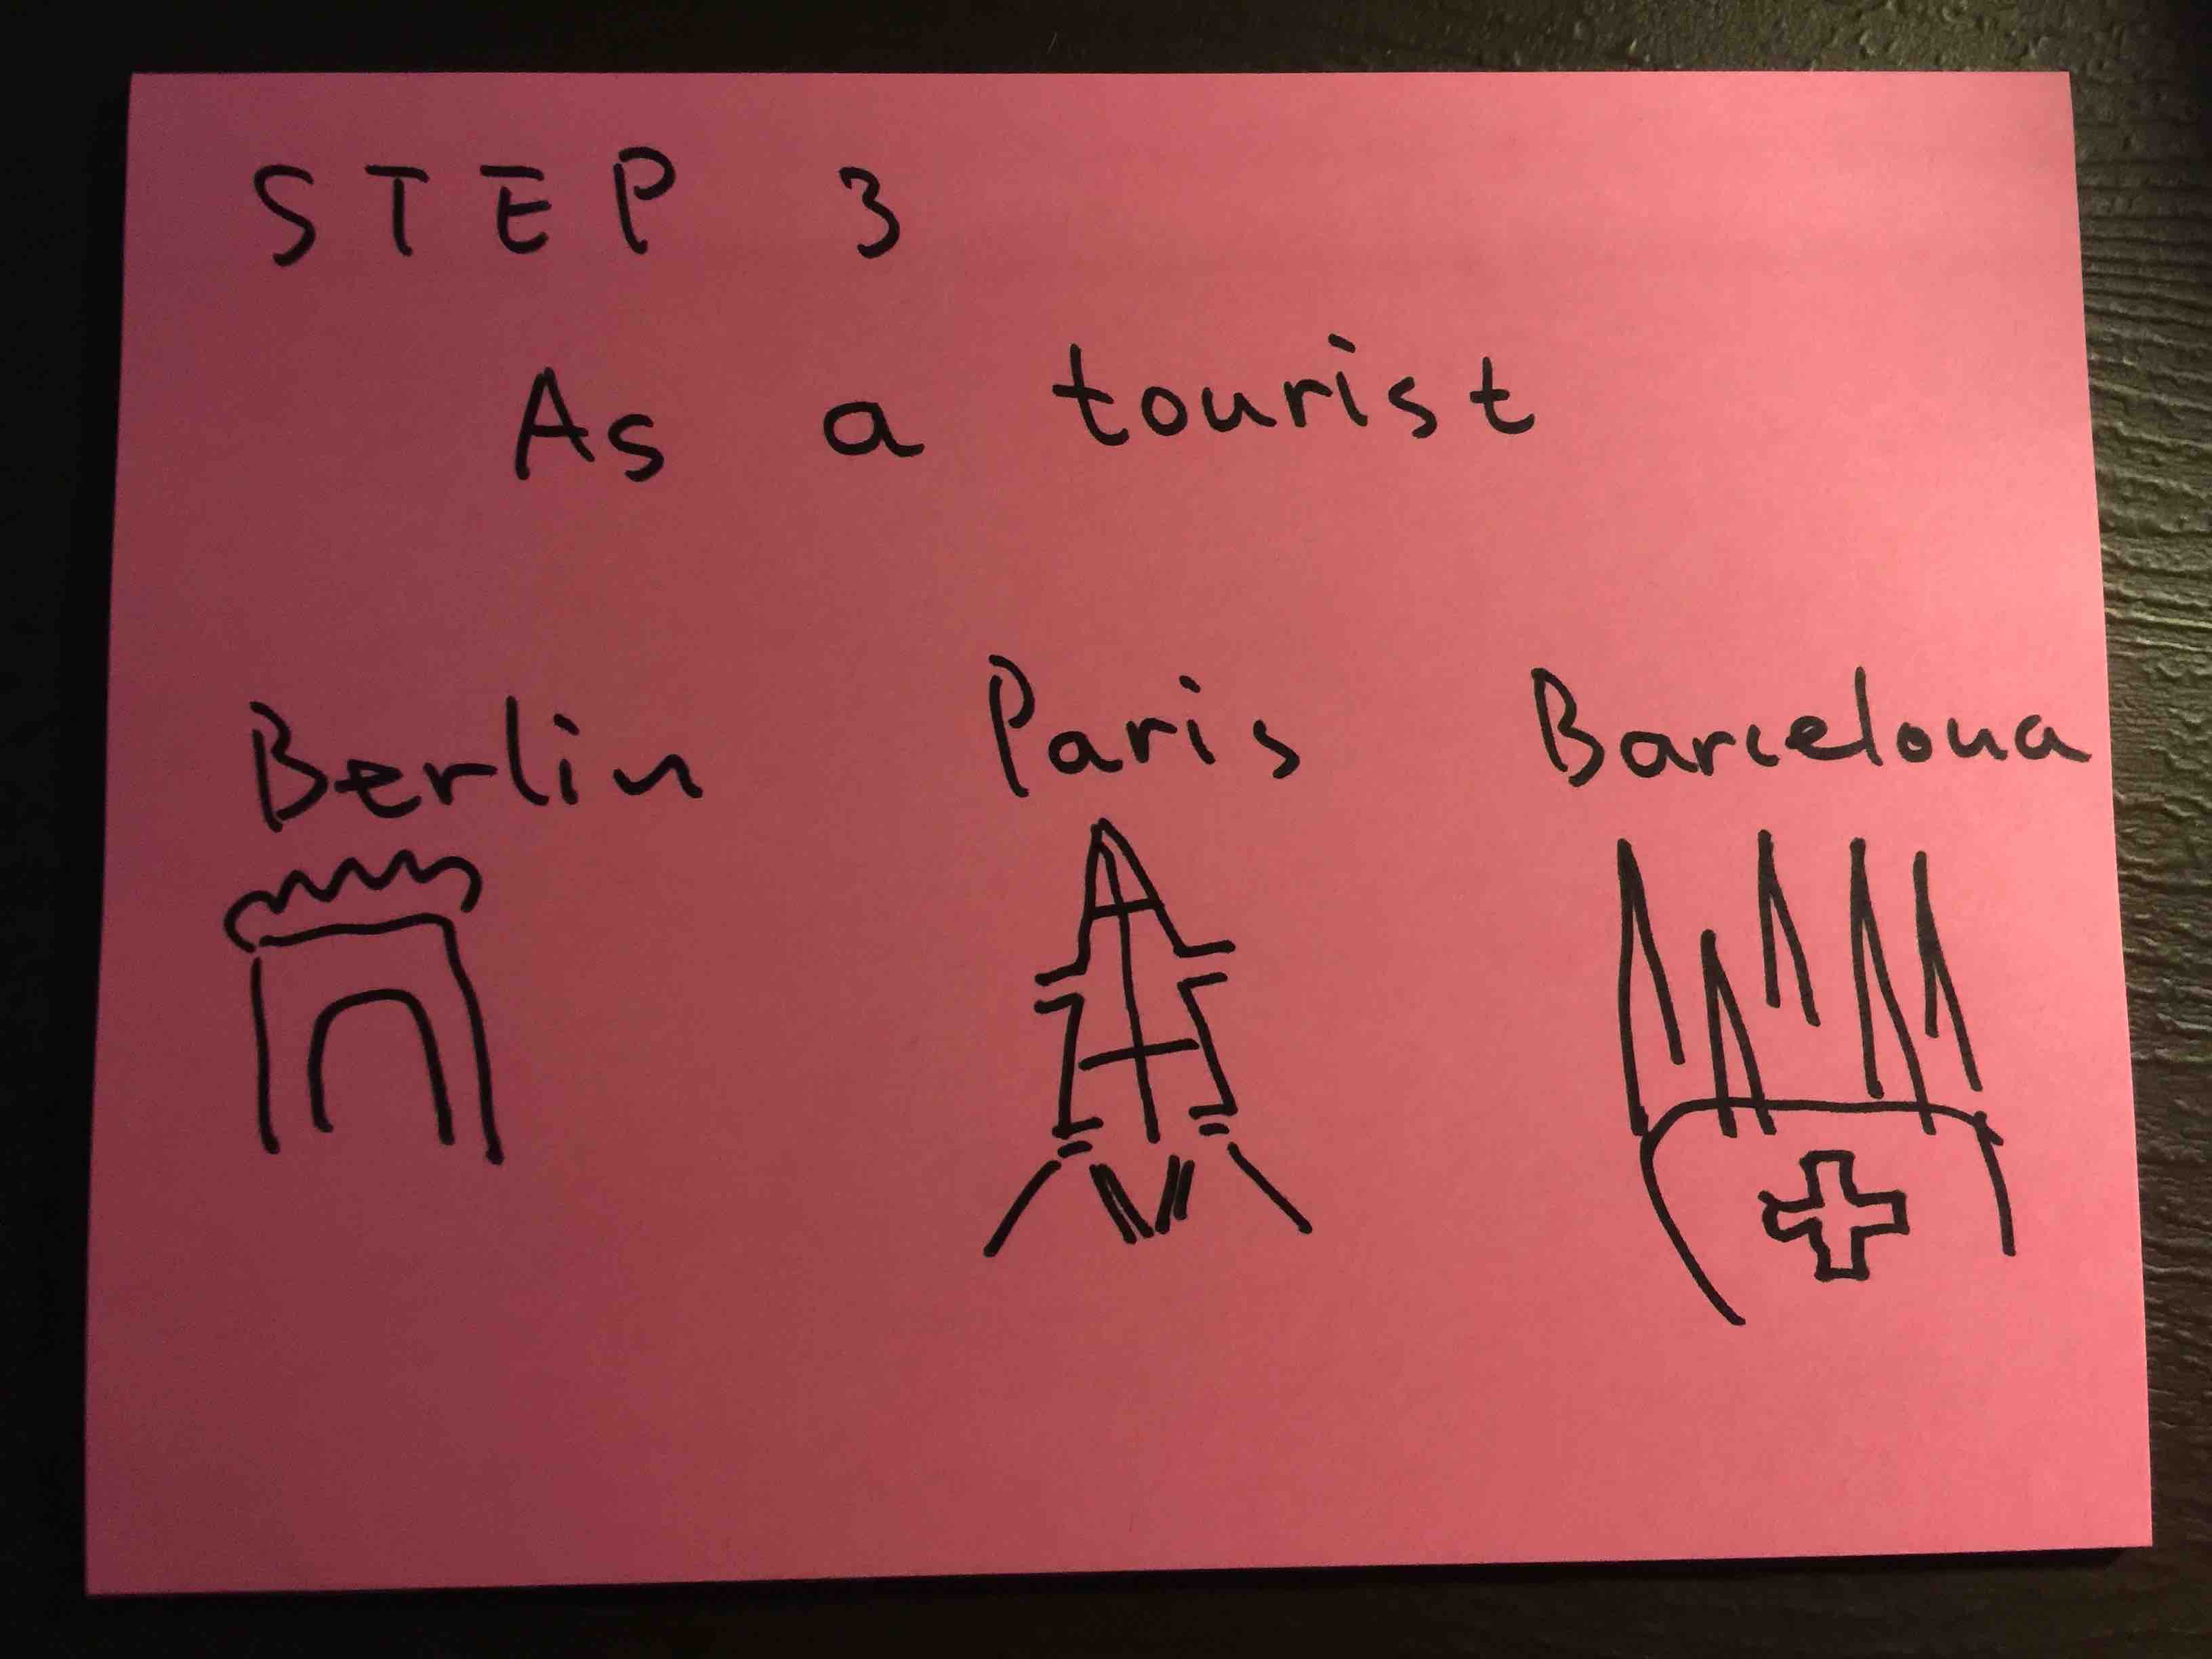 STEP 3
As a tourist
Berlin Paris Barcelona